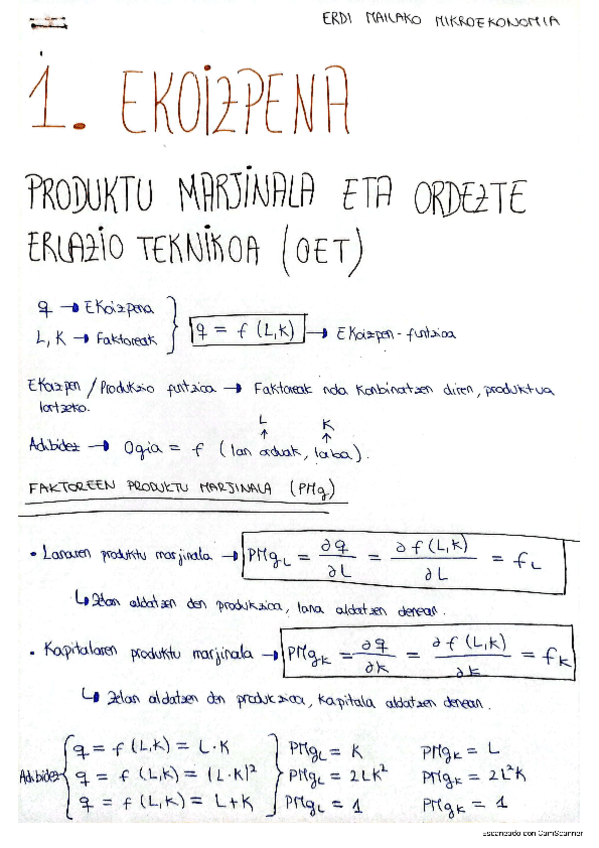 ERDI MAILAKO MIKROEKONOMIA
1. EKOIZPENA
PRODUKTU MARJINALA ETA ORDEZTE
ERLAZIO TEKNIKOA (OET)
q → Ekoizpena
L, K → Faktoreak
q = f (L,K) → Ekoizpen-funtzioa
Ekoizpen / Produkzio funtzioa → Faktoreak nola konbinatzen diren, produktua
lortzeko.
L K
↑ ↑
Adibidez → Ogia = f (lan orduak, laba).
FAKTOREEN PRODUKTU MARJINALA (PMg)
• Lanaren produktu marjinala → PMgL = ∂q/∂L = ∂f(L,K)/∂L = fL
↳ Zelan aldatzen den produkzioa, lana aldatzen denean.
• Kapitalaren produktu marjinala → PMgK = ∂q/∂K = ∂f(L,K)/∂K = fK
↳ Zelan aldatzen den produkzioa, kapitala aldatzen denean.
q = f(L,K) = L·K PMgL = K PMgK = L
Adibidez q = f(L,K) = (L·K)² PMgL = 2LK² PMgK = 2L²K
q = f(L,K) = L+K PMgL = 1 PMgK = 1
Escaneado con CamScanner